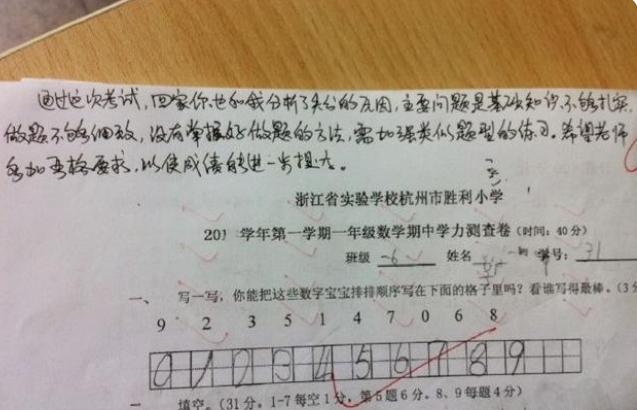 通过这次考试，回家你也和我分析了失分的原因，主要问题是基础知识不够扎实，
做题不够细致，没有掌握好做题的方法，需加强类似题型的练习。希望老师
多加严格要求，以使成绩能进一步提高。
浙江省实验学校杭州市胜利小学
201 学年第一学期一年级数学期中学力测查卷（时间：40分）
班级 一6 姓名 学号：31
一、 写一写，你能把这些数字宝宝排排顺序写在下面的格子里吗？看谁写得最棒。（3分
9 2 3 5 1 4 7 0 6 8
0 1 2 3 4 5 6 7 8 9
填空。（31分。1-7每空1分，第5题6分。8、9每题4分）